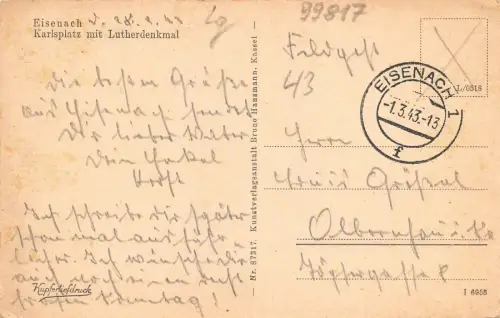 Eisenach d. 28.2.43
Karlsplatz mit Lutherdenkmal
Lg
99817
Die besten Grüße
aus Eisenach sendet
Dir lieber
Dein Onkel
Horst
Ich schreibe Dir später
schon mal ausführ-
licher. Ich wünsche Dir
auch noch einen recht
frohen Sonntag!
Kupfertiefdruck
Nr. 87317. Kunstverlagsanstalt Bruno Hansmann, Kassel
Feldpost
43
L/0318
EISENACH 1
-1.3.43.-13
f
Herrn
I 6958